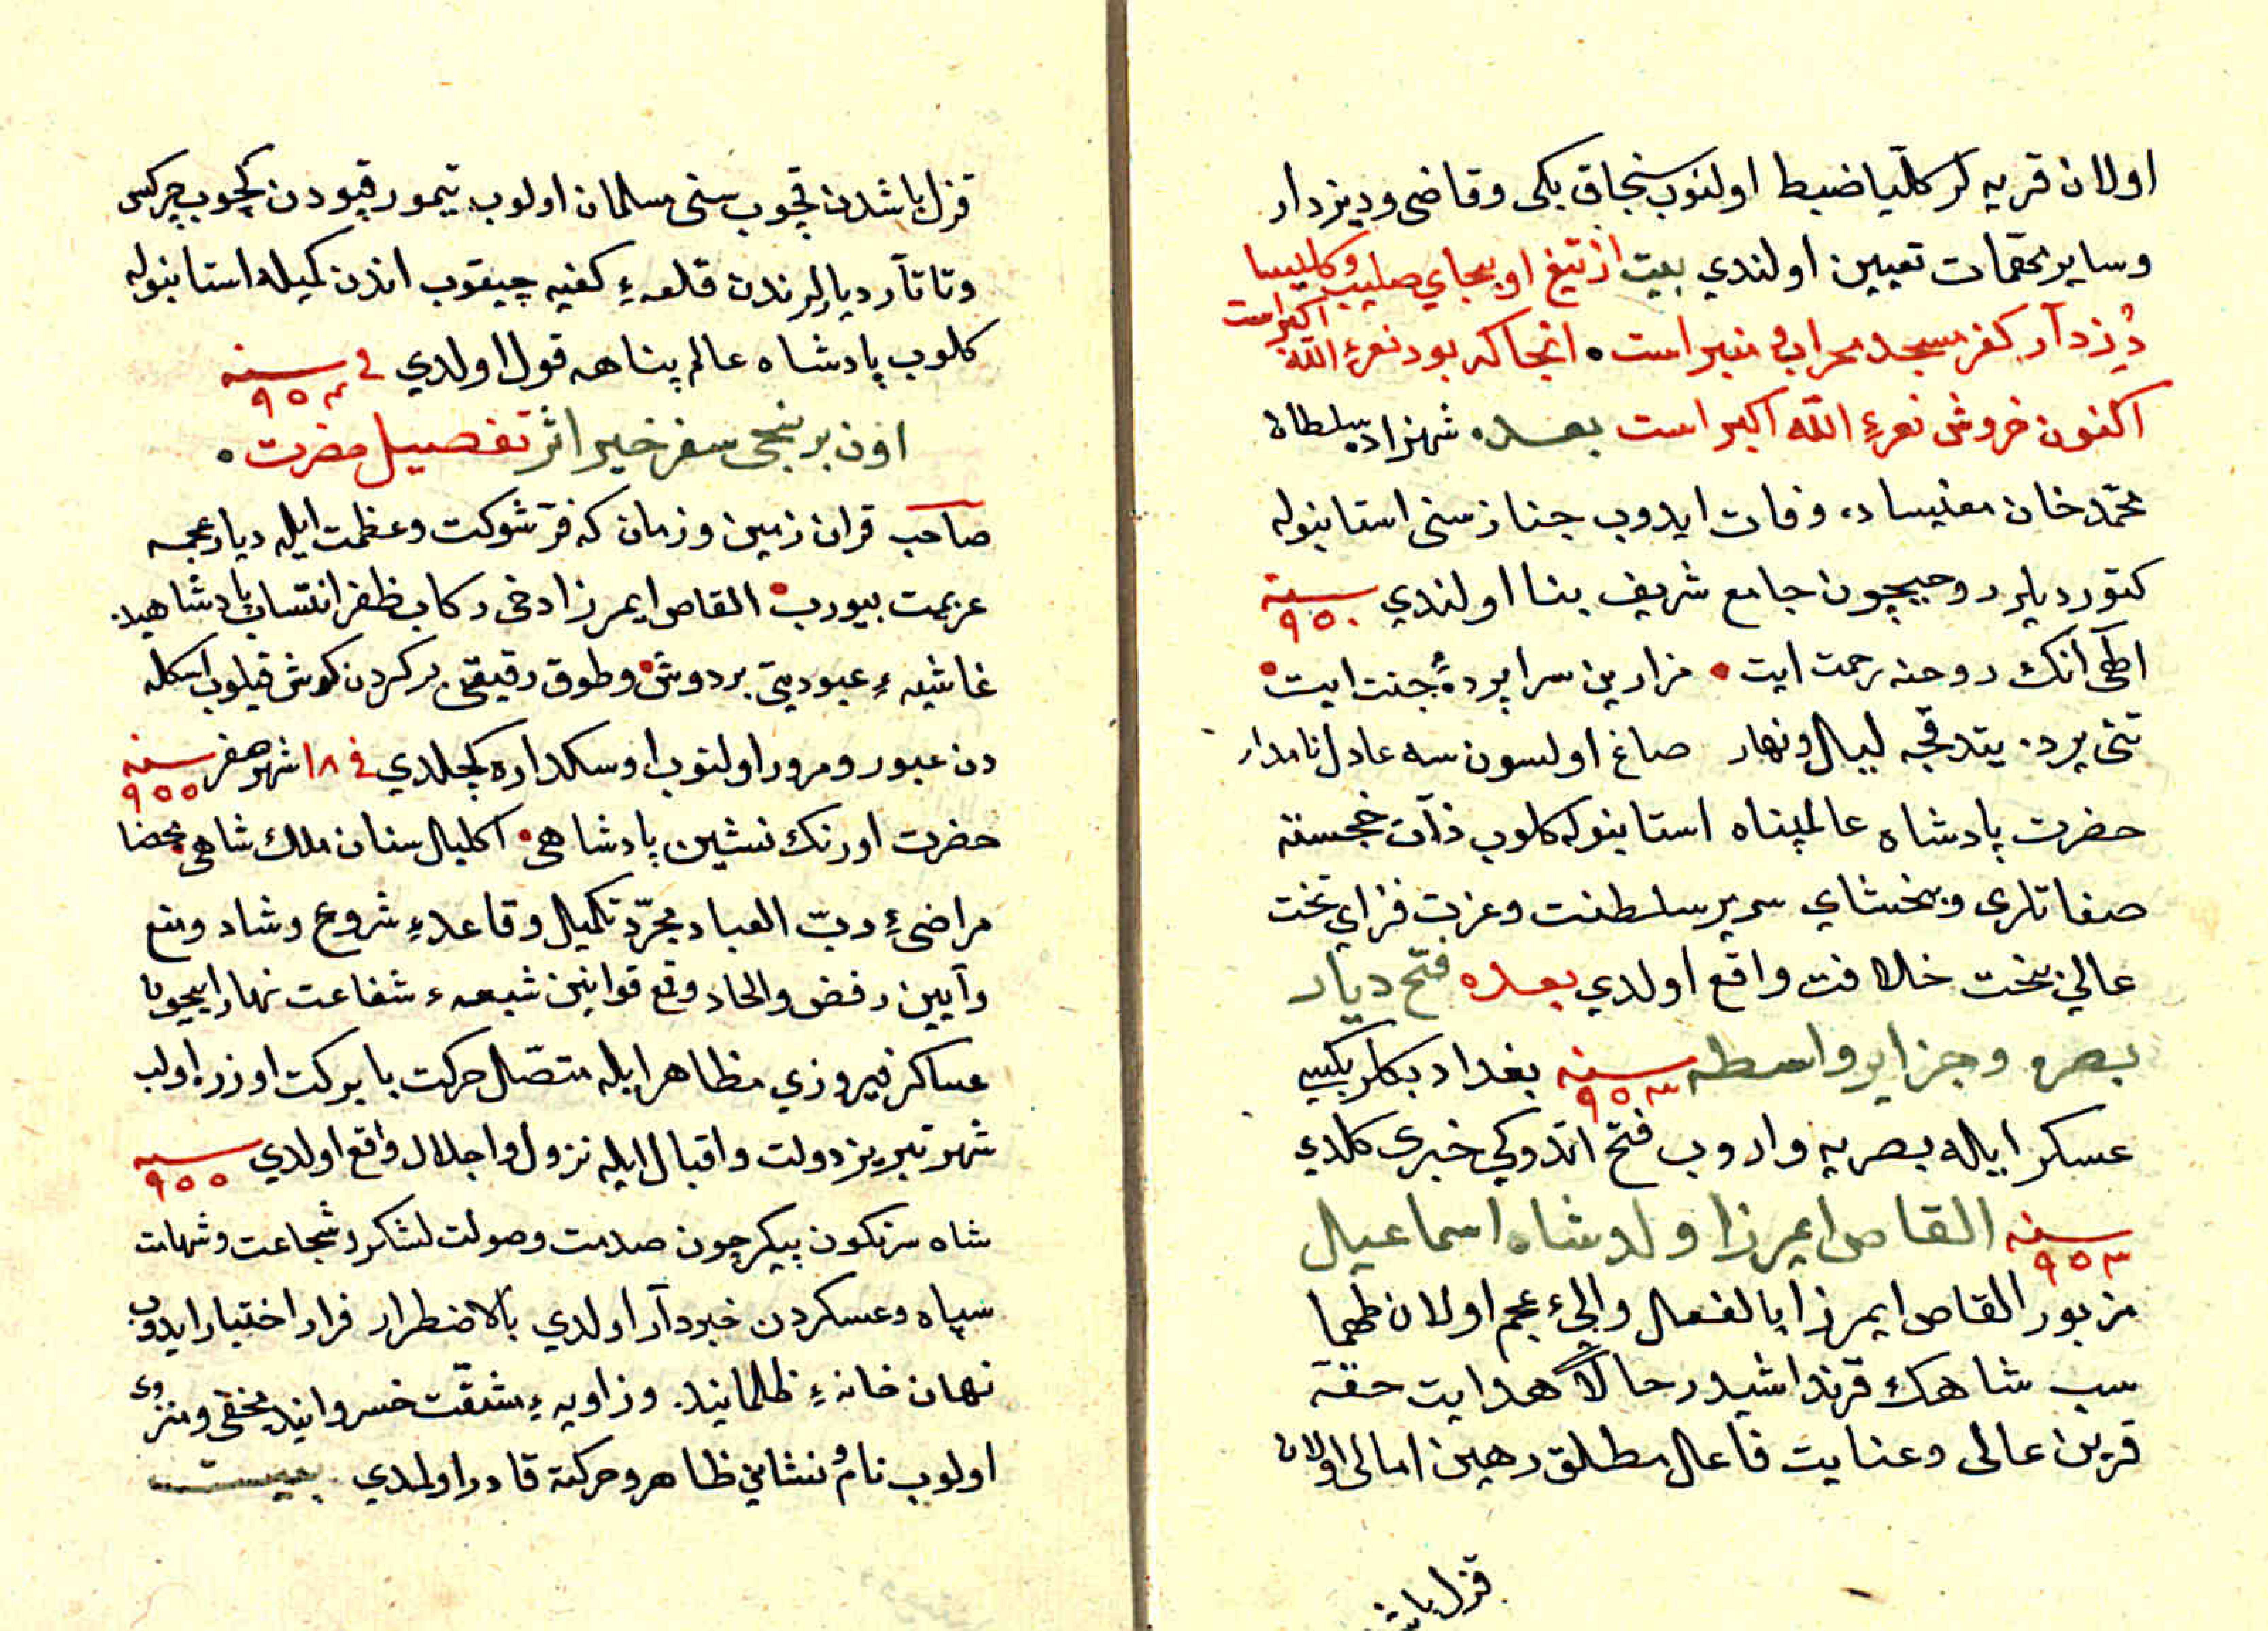 اولان قریه لر كلّیا ضبط اولنوب سنجاق بكی وقاضی ودیزدار
وسایر تحقمات تعیین اولندي بیت از تیغ او بجاي صلیب وكلیسا
دُزدآر كفر مسجد محراب منبر است ۰ انجاكه بود نعرۀ الله اكبر است
اكنون خروش نعرۀ الله اكبر است بعده شهزاده سلطان
محمّد خان مغنیساده وفات ایدوب جنازسنی استانبوله
كتوردیلر روحیچون جامع شریف بنا اولندي سنه ۹۵۰
الٓهی انك روحنه رحمت ایت ۰ مزارین سراپردۀ جنت ایت ۰
تنی یرده یتدقجه لیال ونهار صاغ اولسون سه عادل نامدار
حضرت پادشاه عالمپناه استانبوله كلوب ذآت خجسته
صفاتلری وبخشاي سریر سلطنت وعزت فزاي تخت
عالي بخت خلافت واقع اولدي بعده فتح دیار
بصره وجزایر واسطه سنه ۹۵۳ بغداد بكلربكیسي
عسكر ایاله بصریه واروب فتح اتدوكي خبری كلدي
سنه ۹۵۳ القاص ایمرزا ولد شاه اسماعیال
مزبور القاص ایمرزا بالفعال والیٔ عجم اولان طهما
سب شاهك قرنداشیدر حالا هدایت حقه
قرین عالی وعنایت فاعال مطلق رهین امالی اولان
قزل باش
قزل باشدن قچوب سنی مسلمان اولوب تیمورقپودن كچوب چركس
وتاتآر دیارلرندن قلعهٔ كفیه چیقوب اندن كمیله استانبوله
كلوب پادشاه عالم پناهه قول اولدي في سنه ۹۵۳
اون برینجی سفر خیر اثر تفصیل حضرت ۰
صاحب قران زمین وزمان كه فرّ شوكت وعظمت ایله دیار عجمه
عزیمت بیورب ۰ القاص ایمرزا دخی ركاب ظفر انتساب پادشاهیده
غاشیهٔ عبودیتی بردوش ۰ وطوق رقیقی بركردن كوش قیلوب اسكله
دن عبور ومرور اولنوب اوسكداره كچلدي في ۱۸ شهر صفر سنه ۹۵۵
حضرت اورنك نشین پادشاهی ۰ اكلیال ستان ملك شاهی ۰ محضا
مراضیٔ ربّ العباد مجرّد تكمیال وقاعدهٔ شروع وشاد ومنع
وآیین رفض والحاد وقع قوانین شیعهٔ شفاعت نهاد ایچون
عساكر فیروزي مظاهر ایله متصّل حركت بابركت اوزره اولب
شهر تبریز دولت واقبال ایله نزول واجلال واقع اولدي سنه ۹۵۵
شاه سرنكون پیكر چون صدمت وصولت لشكر وشجاعت وشهامت
سپاه وعسكردن خبردآر اولدي بالاضطرار فرار اختیار ایدوب
نهان خانهٔ ظلمانیده وزاویهٔ مشقّت خسروانیده مخفی ومنزوی
اولوب نام ونشاني ظاهر وحركته قادر اولمدي بیت